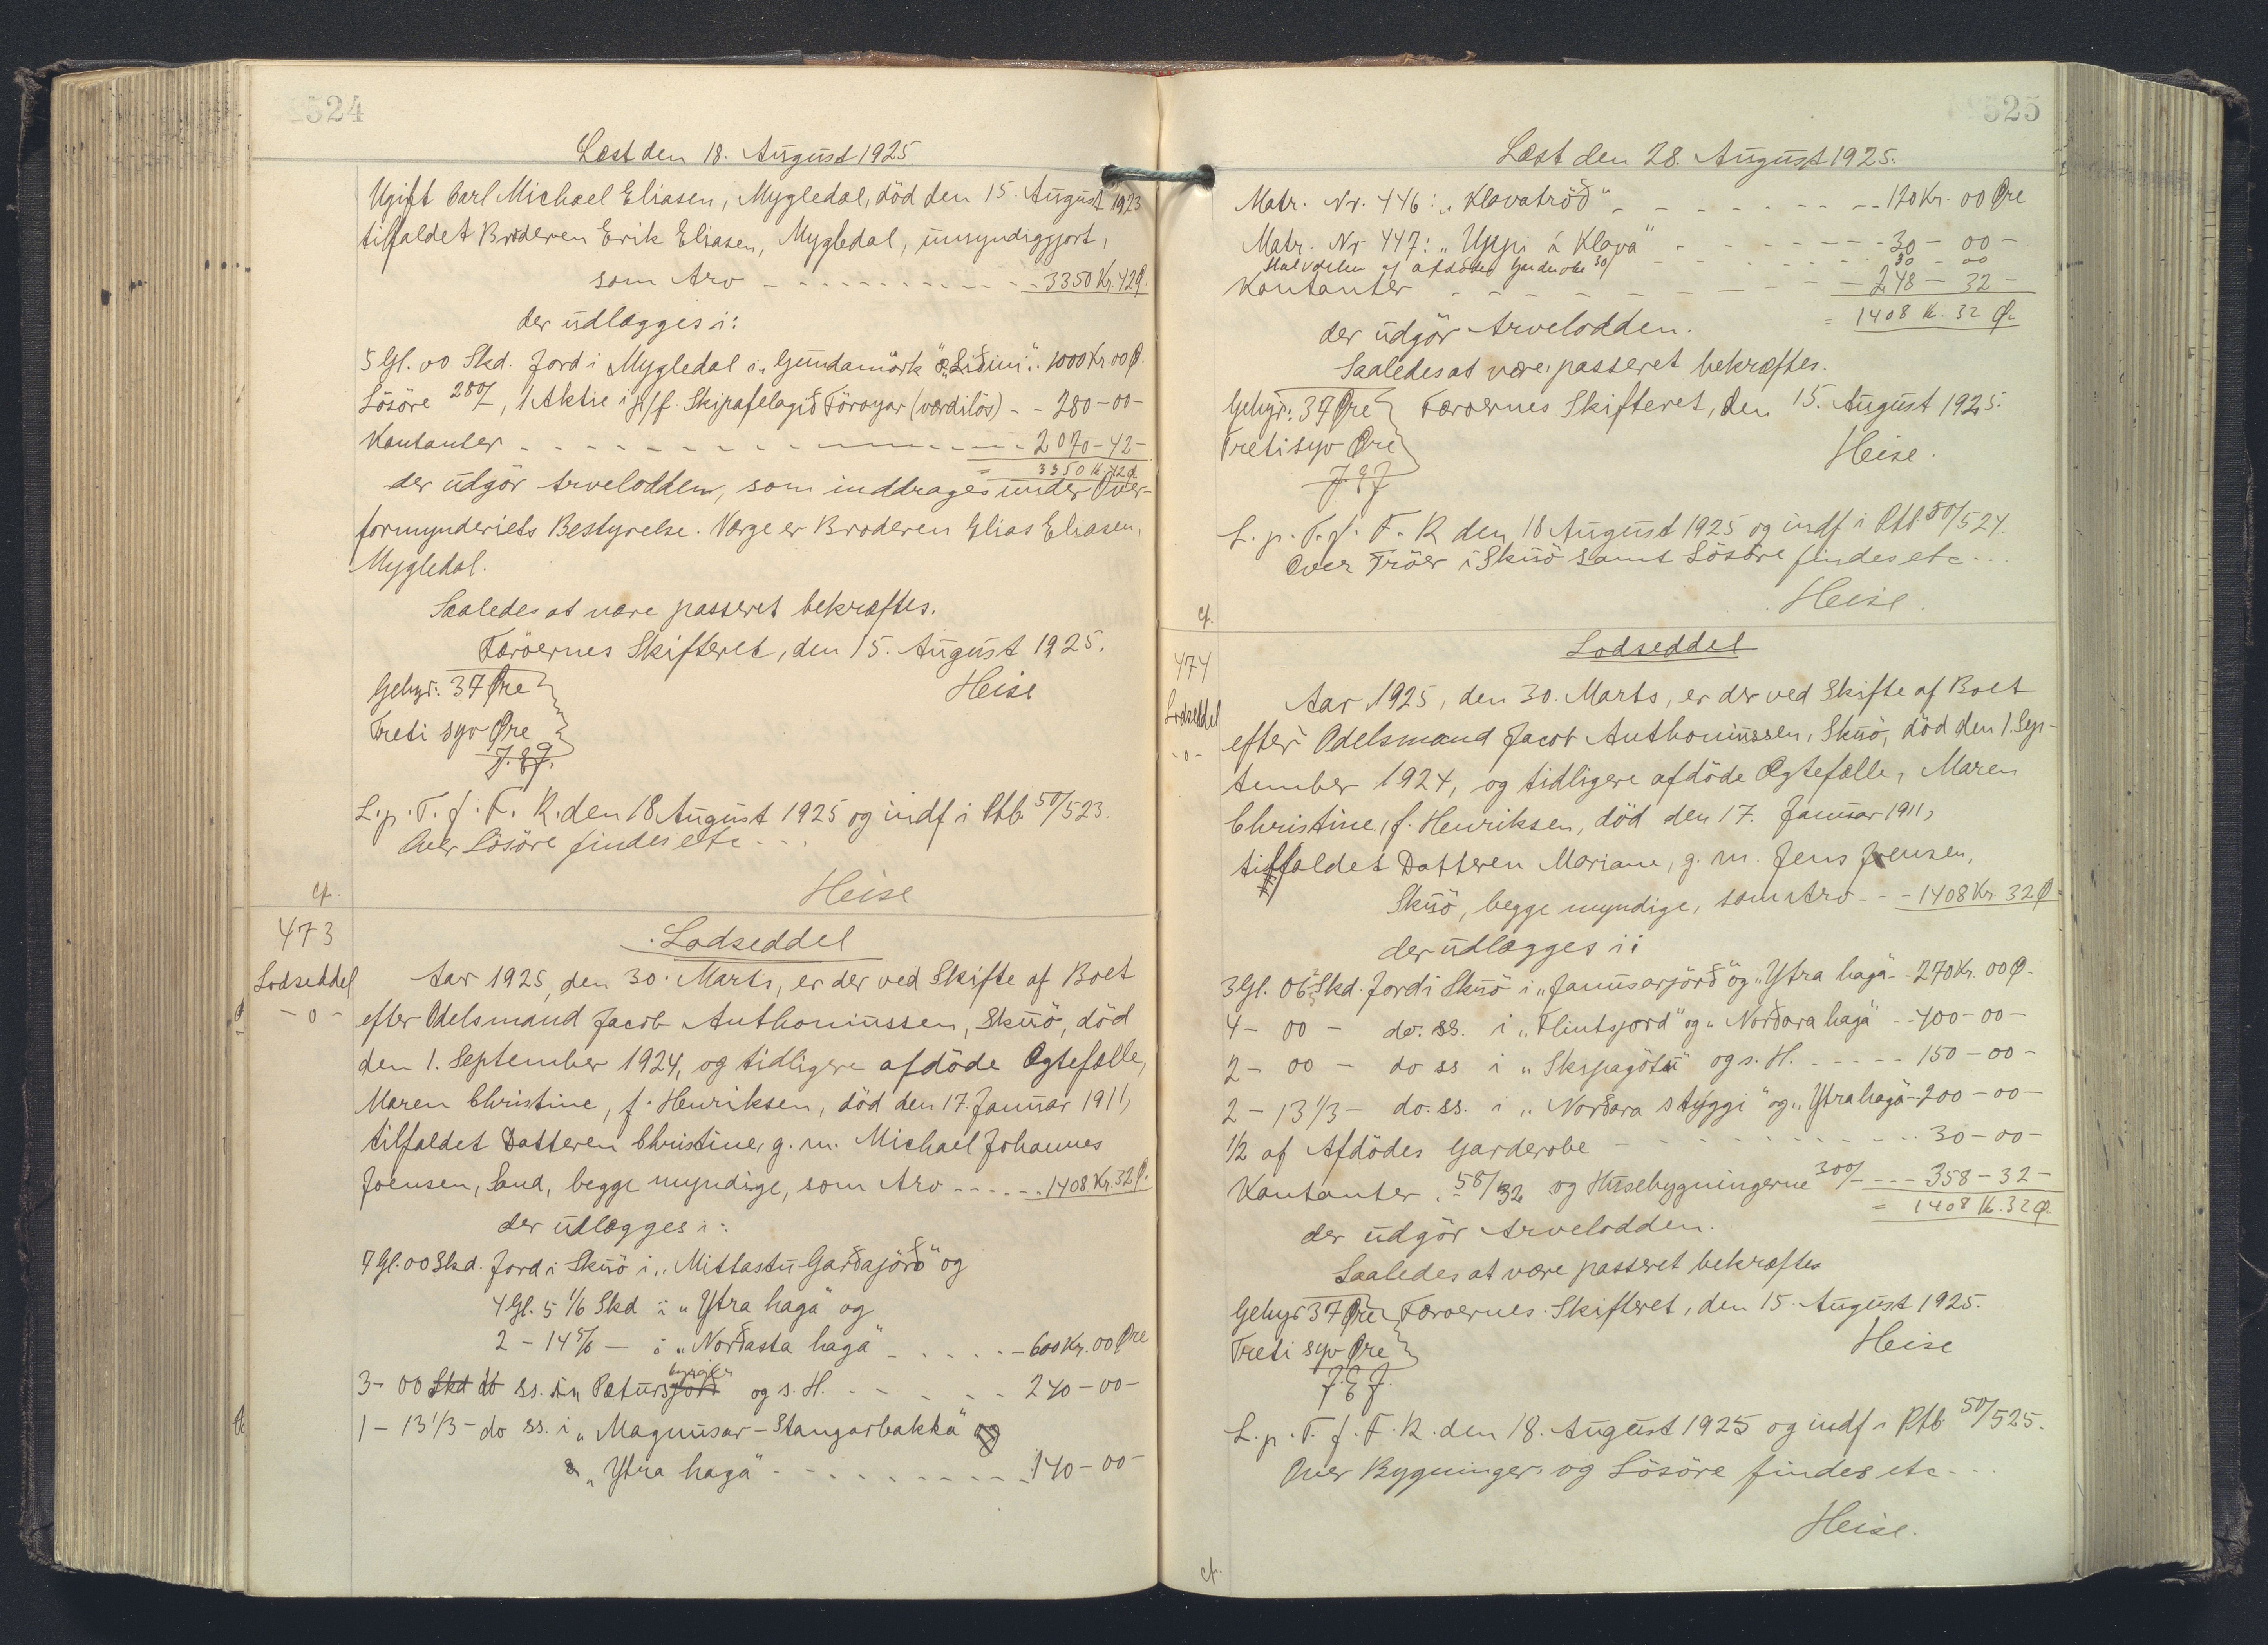 524
Læst den 18. August 1925.
Ugift Carl Michael Eliasen, Mygledal, död den 15. August 1923
tilfaldet Broderen Erik Eliasen, Mygledal, umyndiggjort,
som Arv - - - 3350 Kr. 42 Ø.
der udlægges i:
5 Gl. 00 Skd. Jord i Mygledal i „Gundamørk" „Liðini". 1000 Kr. 00 Ø.
Lösöre 280/-, 1 Aktie i p/f. Skipafelagið Föroyar (værdilös) - - 280-00-
Kontanter - - - 2070-42-
= 3350 Kr. 42 Ø.
der udgör Arvelodden, som inddrages under Over-
formynderiets Bestyrelse. Værge er Broderen Elias Eliasen,
Mygledal.
Saaledes at være passeret bekræftes.
Færöernes Skifteret, den 15. August 1925.
Gebyr: 37 Øre
Heise
Treti syv Øre
J.EJ.
L. p. T. f. F. R. den 18 August 1925 og indf i Ptb. 50/523.
Over Lösöre findes etc...
Heise
cf.
473
Lodseddel
Lodseddel
- o -
Aar 1925, den 30. Marts, er der ved Skifte af Boet
efter Odelsmand Jacob Anthoniussen, Skuö, död
den 1. September 1924, og tidligere afdöde Ægtefælle,
Maren Christine, f. Henriksen, död den 17. Januar 1911,
tilfaldet Datteren Christine, g. m. Michael Johannes
Joensen, Sand, begge myndige, som Arv - - - 1408 Kr. 32 Ø.
der udlægges i:
7 Gl. 00 Skd. Jord i Skuö i „Mittastu Garðajörð" og
4 Gl. 5 1/6 Skd i „Ytra haga" og
2 - 14 5/6 - i „Norðasta haga" - - - 600 Kr. 00 Øre
3- 00 Skd do ss. i „Pætursjörð og s. H. - - - 240-00-
1 - 13 1/3 - do ss. i „Magnusar-Stangarbakka" og
„Ytra haga" - - - 140-00-
525
Læst den 28. August 1925.
Matr. Nr. 446: „Klavatröð" - - - 120 Kr. 00 Øre
Matr. Nr 447: „Uppi á Klava" - - - 30 - 00 -
Halvdelen af afdödes Garderobe 30/ - - - 30 - 00
Kontanter - - - 248 - 32 -
= 1408 Kr. 32 Ø.
der udgör Arvelodden.
Saaledes at være passeret bekræftes.
Gebyr: 37 Øre Færøernes Skifteret, den 15. August 1925.
Tretisyv Øre
Heise.
J.EJ
L. p. T. f. F. R den 18 August 1925 og indf i Ptb 50/524.
Over Tröer i Skuö samt Lösöre findes etc...
Heise.
cf.
Lodseddel
474
Lodseddel
- o -
Aar 1925, den 30. Marts, er der ved Skifte af Boet
efter Odelsmand Jacob Anthoniussen, Skuö, död den 1. Sep-
tember 1924, og tidligere afdöde Ægtefælle, Maren
Christine, f. Henriksen, död den 17. Januar 1911,
tilfaldet Datteren Mariane, g. m. Jens Jensen,
Skuö, begge myndige, som Arv - - 1408 Kr. 32 Ø.
der udlægges i:
3 Gl. 06 Skd. Jord i Skuö i „Janusarjörð" og „Ytra haga" - 270 Kr. 00 Ø.
4 - 00 - do. ss. i „Flintsjord" og „Norðara haga" - - 400-00-
2 - 00 - do ss i „Skipagötu" og s. H. - - - 150-00-
2 - 13 1/3 - do. ss. i „Norðara styggi" og „Ytra haga - 200-00-
1/2 af Afdödes Garderobe - - - 30-00-
Kontanter 58/32 og Husebygningerne 300/- - - - 358-32-
= 1408 Kr. 32 Ø.
der udgör Arvelodden.
Saaledes at være passeret bekræftes
Gebyr 37 Øre Færøernes Skifteret, den 15. August 1925.
Treti syv Øre
Heise
J.EJ.
L. p. T. f. F. R. den 18. August 1925 og indf i Ptb 50/525.
Over Bygninger og Lösöre findes etc...
Heise.
cf.